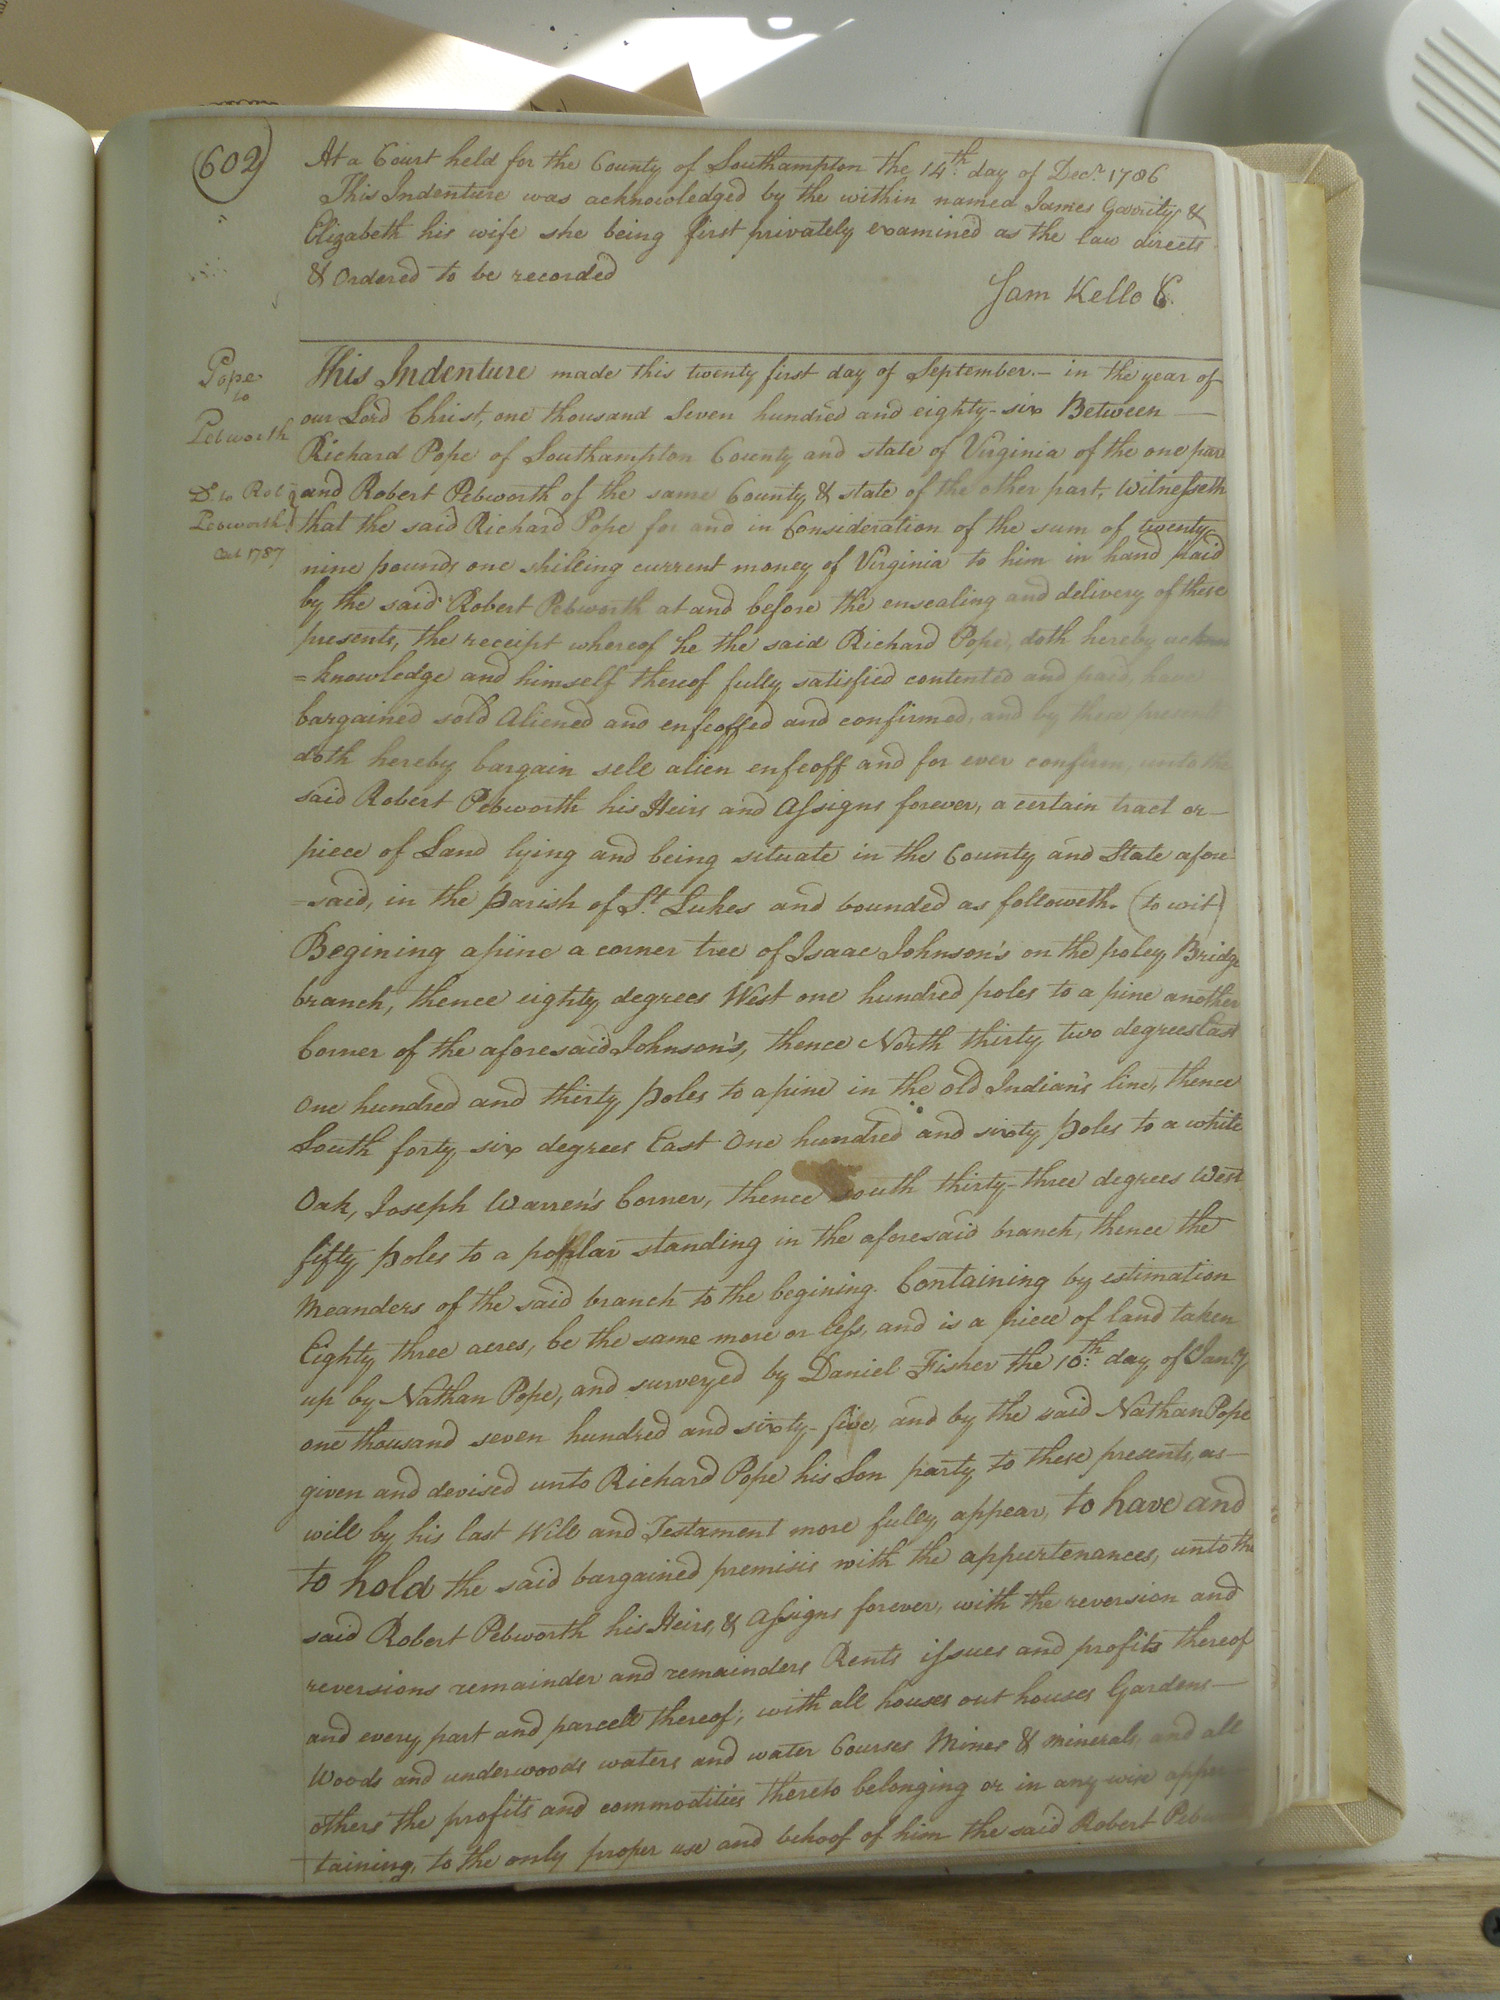 (602)
At a Court held for the County of Southampton the 14th. day of Decr. 1786
This Indenture was acknowledged by the within named James Garrity &
Elizabeth his wife she being first privately examined as the law directs
& ordered to be recorded
Sam Kello C.
Pope
to
Pebworth
Dd. to Robt
Pebworth
Oct 1787
This Indenture made this twenty first day of September.— in the year of
our Lord Christ, one thousand Seven hundred and eighty-six Between —
Richard Pope of Southampton County and state of Virginia of the one part
and Robert Pebworth of the same County & state of the other part, Witnesseth
that the said Richard Pope for and in Consideration of the sum of twenty
nine pounds one shilling current money of Virginia to him in hand paid
by the said Robert Pebworth at and before the ensealing and delivery of these
presents, the receipt whereof he the said Richard Pope, doth hereby
=knowledge and himself thereof fully satisfied contented and paid, have
bargained sold Aliened and enfeoffed and confirmed, and by these presents
doth hereby bargain sell alien enfeoff and for ever confirm, unto the
said Robert Pebworth his Heirs and Assigns forever, a certain tract or—
piece of Land lying and being situate in the County and State afore
=said, in the parish of St. Lukes and bounded as followeth. (to wit)
Begining a pine a corner tree of Isaac Johnson's on the poley Bridge
branch, thence eighty degrees West one hundred poles to a pine another
Corner of the aforesaid Johnson's, thence North thirty two degrees East
One hundred and thirty poles to a pine in the old Indian's line, thence
South forty-six degrees East One hundred and sixty poles to a white
Oak, Joseph Warren's Corner, thence South thirty-three degrees West
fifty poles to a poplar standing in the aforesaid branch, thence the
Meanders of the said branch to the begining. Containing by estimation
Eighty three acres, be the same more or less, and is a piece of land taken
up by Nathan Pope, and surveyed by Daniel Fisher the 10th. day of Jany
one thousand seven hundred and sixty-five, and by the said Nathan Pope
given and devised unto Richard Pope his Son party to these presents, as—
will by his last Will and Testament more fully appear, to have and
to hold the said bargained premisis with the appurtenances, unto the
said Robert Pebworth his Heirs, & Assigns forever, with the reversion and
reversions remainder and remainders Rents issues and profits thereof
and every part and parcell thereof; with all houses out houses Gardens—
Woods and underwoods waters and water Courses Mines & minerals, and all
others the profits and commodities thereto belonging or in any wise apper
taining, to the only proper use and behoof of him the said Robert